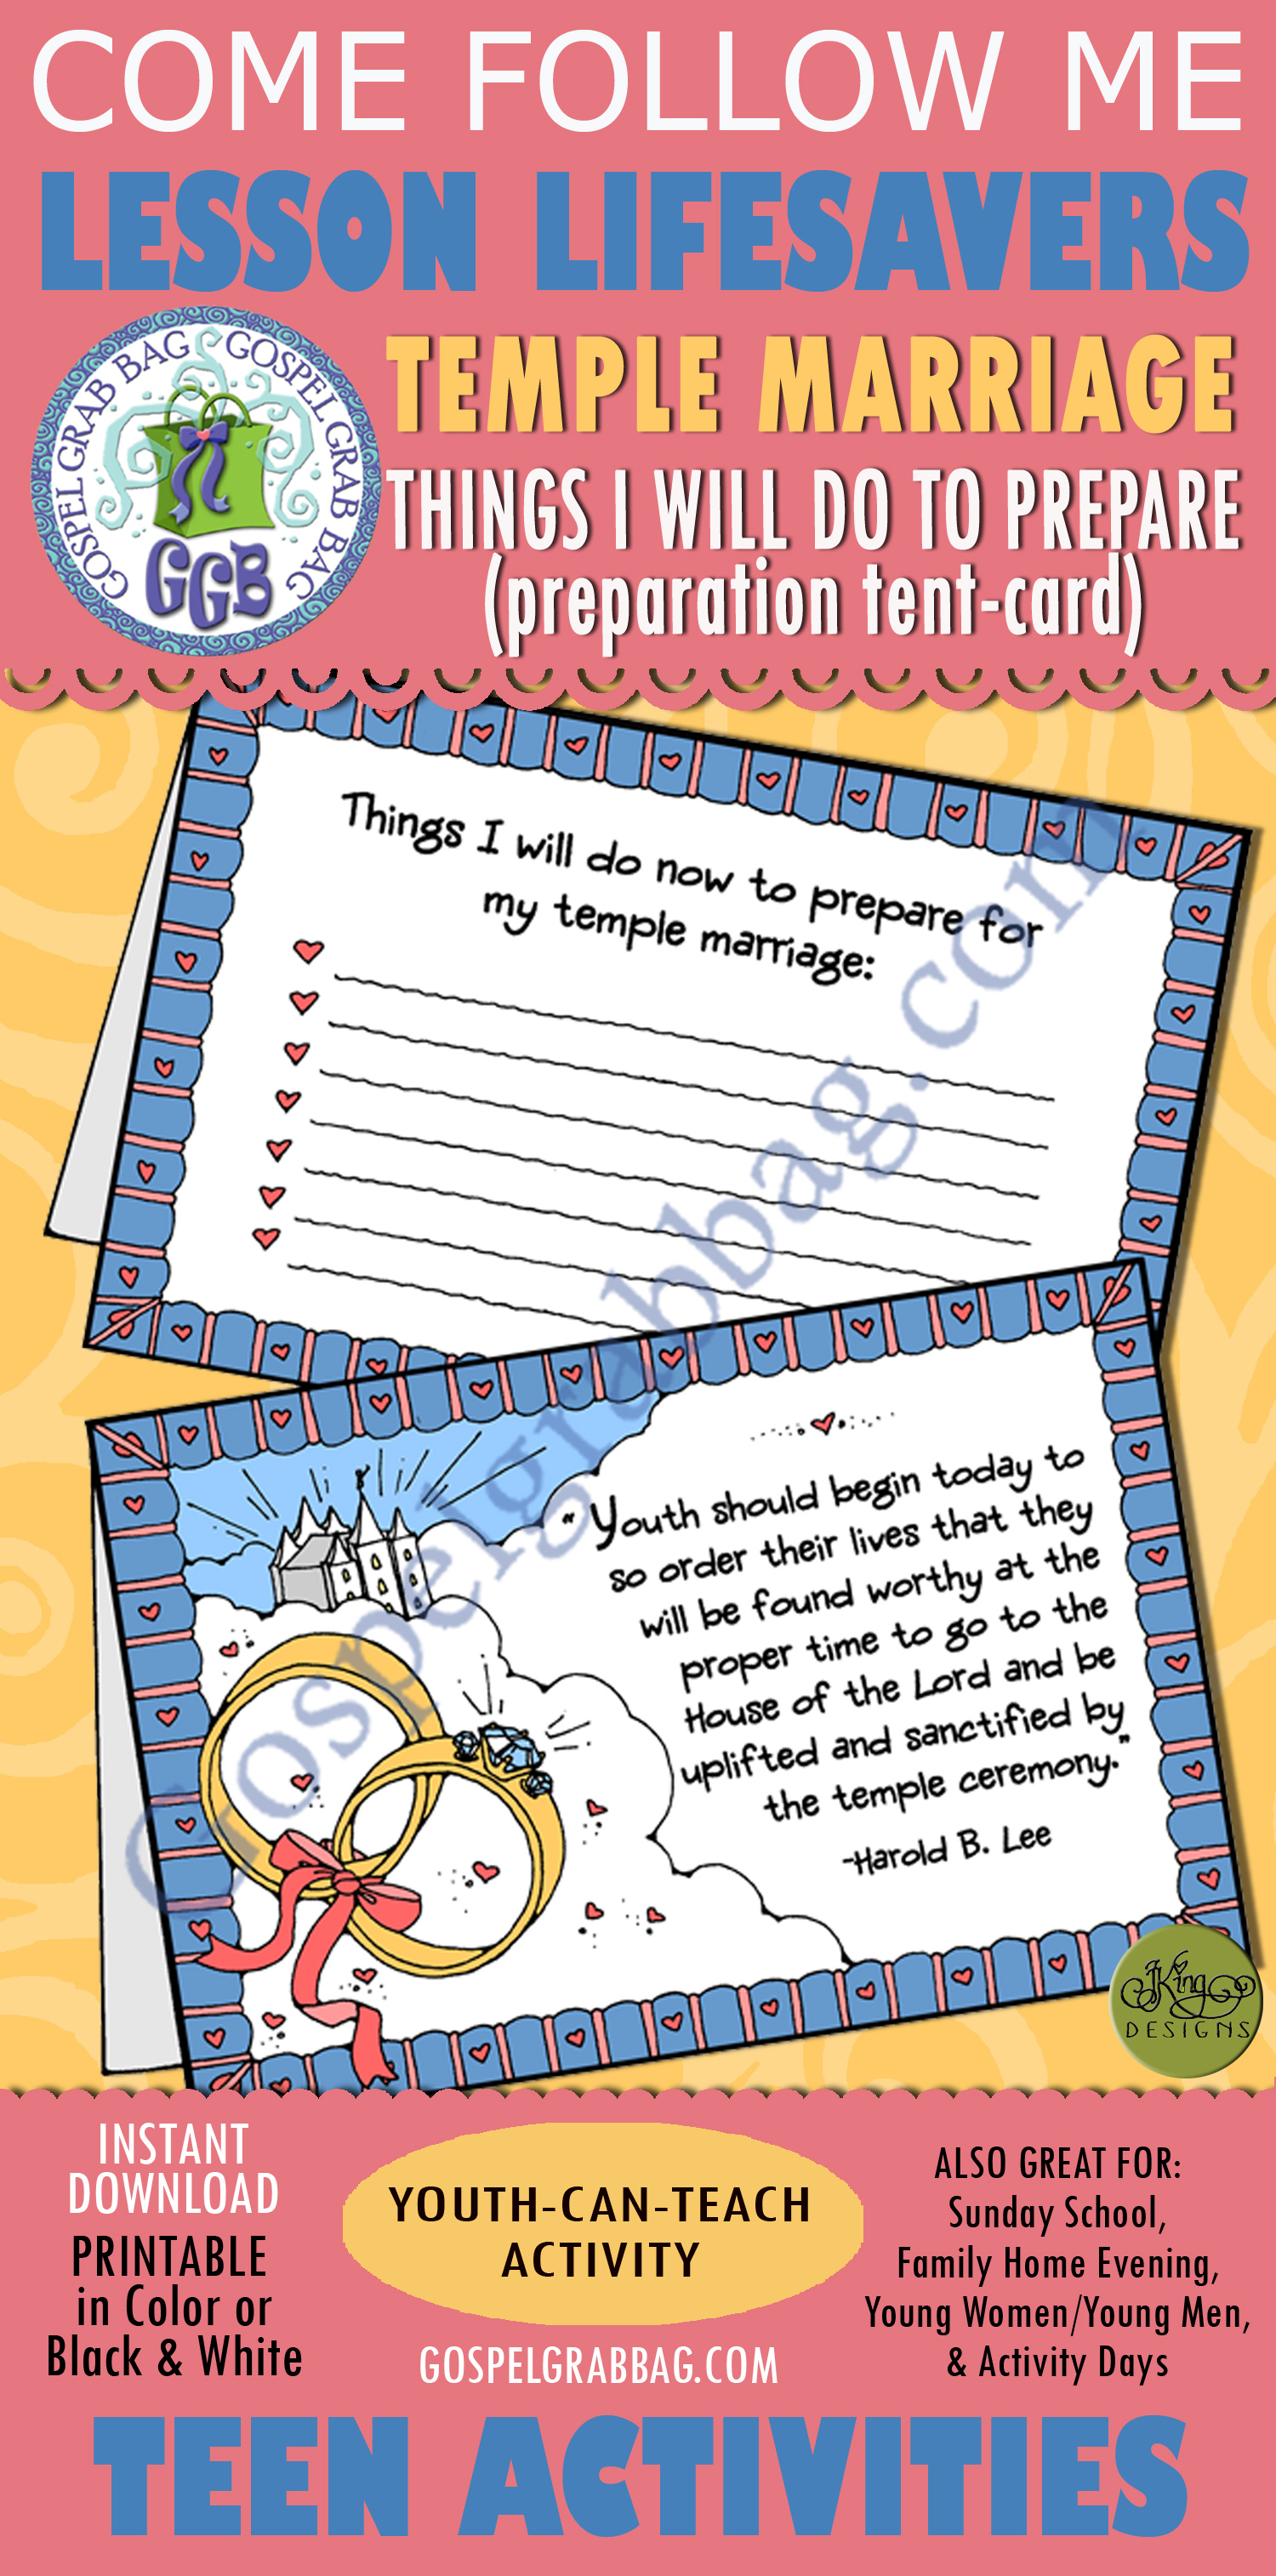 COME FOLLOW ME
LESSON LIFESAVERS
GOSPEL GRAB BAG GOSPEL GRAB BAG
GGB
TEMPLE MARRIAGE
THINGS I WILL DO TO PREPARE
(preparation tent-card)
Things I will do now to prepare for
my temple marriage:
Gospelgrabbag.com
"Youth should begin today to
so order their lives that they
will be found worthy at the
proper time to go to the
House of the Lord and be
uplifted and sanctified by
the temple ceremony."
-Harold B. Lee
JKing
DESIGNS
INSTANT
DOWNLOAD
PRINTABLE
in Color or
Black & White
YOUTH-CAN-TEACH
ACTIVITY
GOSPELGRABBAG.COM
ALSO GREAT FOR:
Sunday School,
Family Home Evening,
Young Women/Young Men,
& Activity Days
TEEN ACTIVITIES